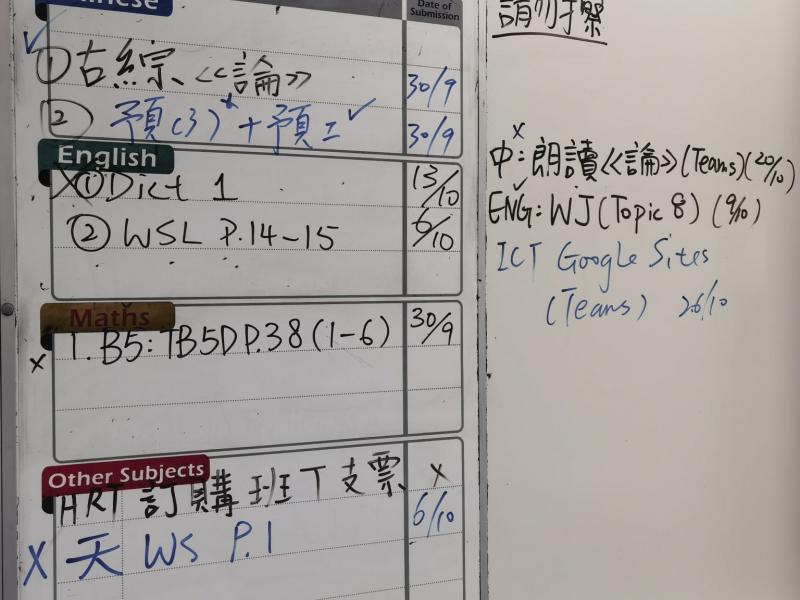 Chinese
Date of
Submission
① 古綜《論》 30/9
② 預(3)* + 預二 30/9
English
① Dict 1 13/10
② WSL P.14-15 6/10
Maths
1. B5: TB5D P.38 (1-6) 30/9
Other Subjects
HRT 訂購班T支票 x
天 WS P.1 6/10
請勿擦
中: 朗讀《論》(Teams) (20/10)
ENG: WJ (Topic 8) (9/10)
ICT Google Sites
(Teams) 26/10